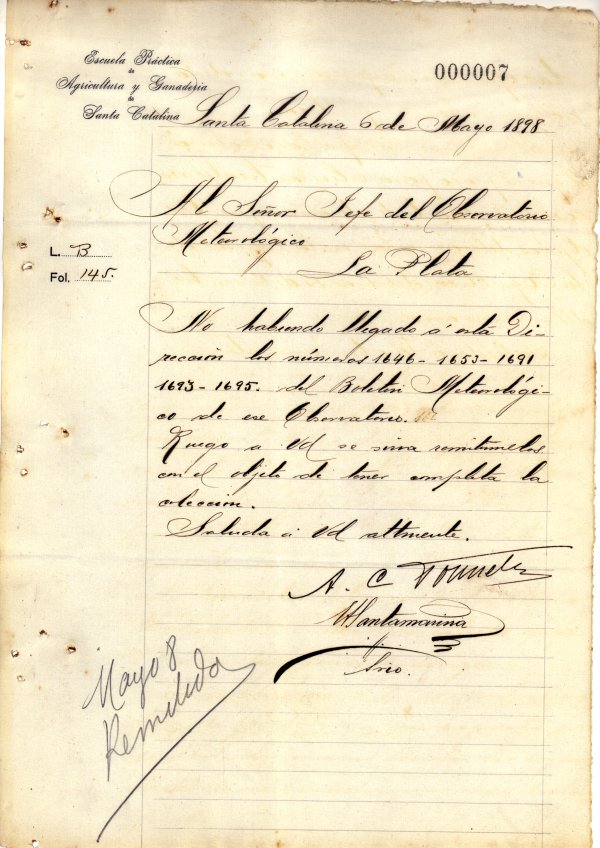 Escuela Práctica
de
Agricultura y Ganaderia
de
Santa Catalina
000007
Santa Catalina 6 de Mayo 1898
Al Señor Jefe del Observatorio
Meteorológico
La Plata
L. B
Fol. 145.
No habiendo llegado á esta Di-
rección los números 1646-1653-1691
1693-1695. del Boletin Meteorológi-
co de ese Observatorio.
Ruego a Vd se sirva remitirmelos
con el objeto de tener completa la
colección.
Saluda á Vd attmente.
A. C
Santamarina
Srio.
Mayo 8
Remitida